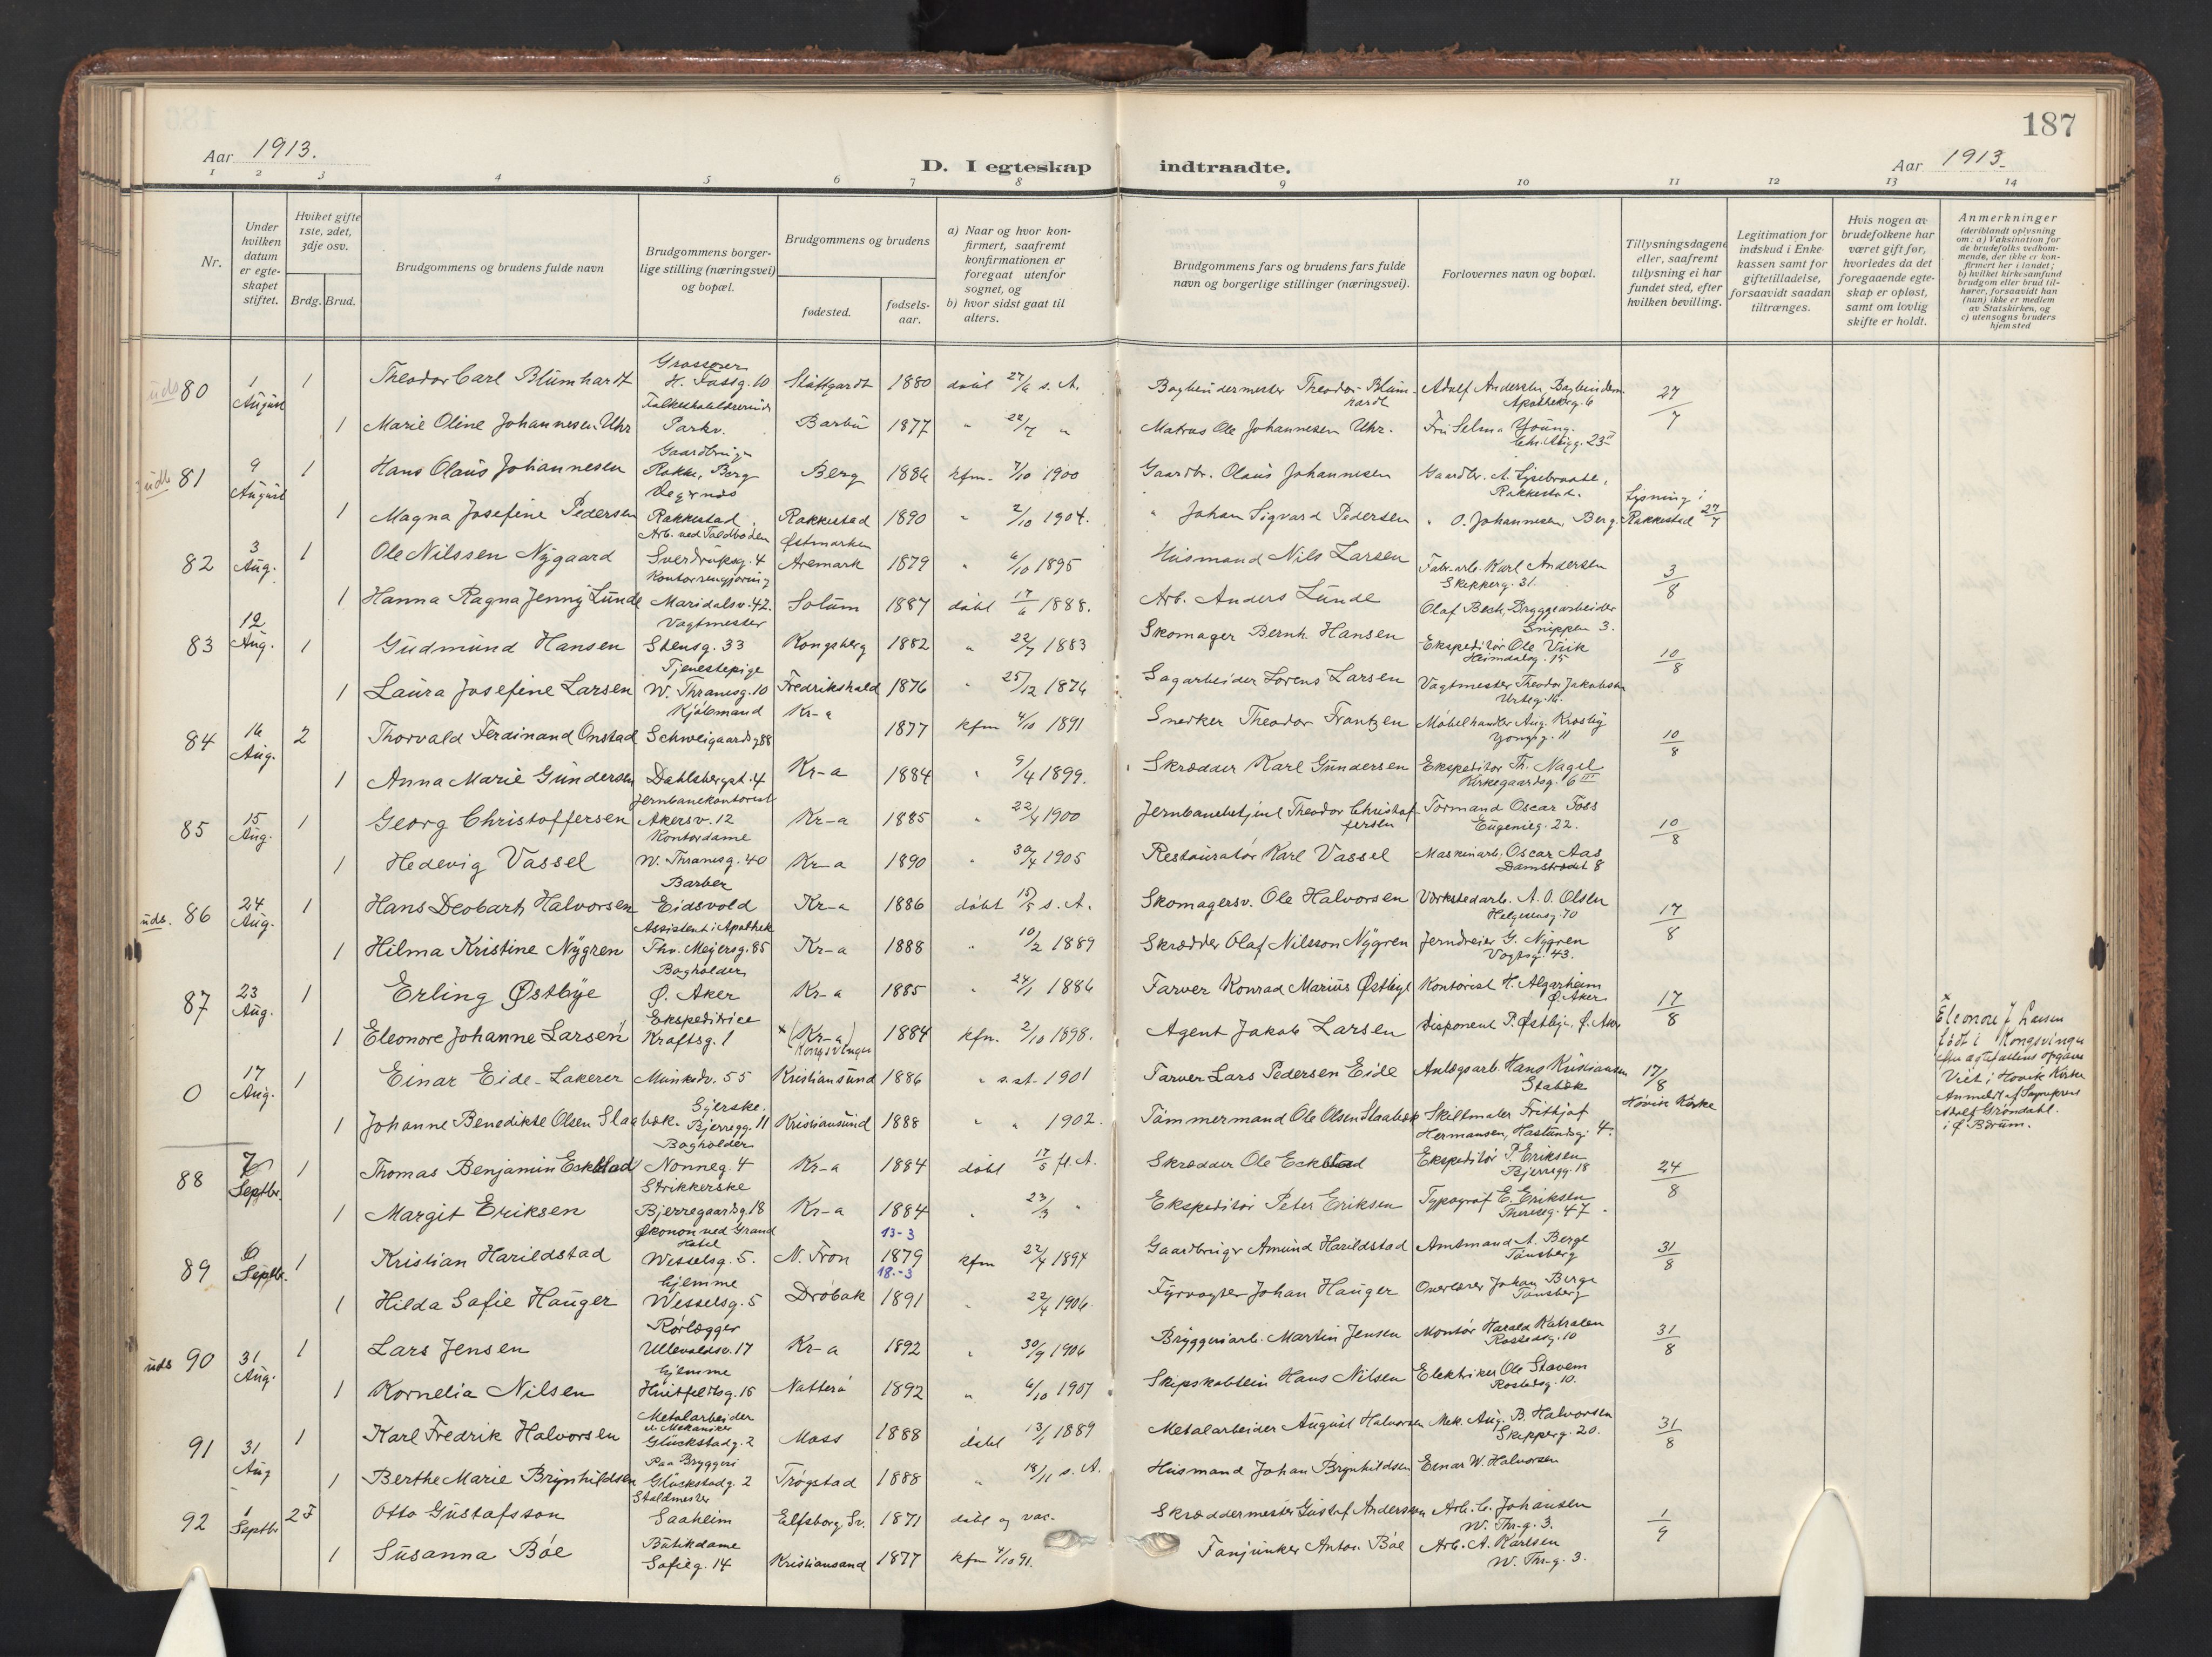 187
Aar 1913.
D. I egteskap indtraadte.
Aar 1913.
1 2 3 4 5 6 7 8 9 10 11 12 13 14
Nr.
Under hvilken datum er egteskapet stiftet.
Hviket gifte 1ste, 2det, 3dje osv.
Brdg. Brud.
Brudgommens og brudens fulde navn
Brudgommens borgerlige stilling (næringsvei) og bopæl.
Brudgommens og brudens
fødested.
fødselsaar.
a) Naar og hvor konfirmert, saafremt konfirmationen er foregaat utenfor sognet, og
b) hvor sidst gaat til alters.
Brudgommens fars og brudens fars fulde navn og borgerlige stillinger (næringsvei).
Forlovernes navn og bopæl.
Tillysningsdagene eller, saafremt tillysning ei har fundet sted, efter hvilken bevilling.
Legitimation for indskud i Enkekassen samt for giftetilladelse, forsaavidt saadan tiltrænges.
Hvis nogen av brudefolkene har været gift før, hvorledes da det foregaaende egteskap er opløst, samt om lovlig skifte er holdt.
Anmerkninger (deriblandt oplysning om: a) Vaksination for de brudefolks vedkommende, der ikke er konfirmert her i landet; b) hvilket kirkesamfund brudgom eller brud tilhører, forsaavidt han (hun) ikke er medlem av Statskirken, og c) utensogns bruders hjemsted
uds 80 1 August 1 Theodor Carl Blumhardt Grosserer H. Fossg. 10 Stuttgardt 1880 døbt 27/6 s. A. Bogbindermester Theodor Blumhardt Adolf Andersen, Bogbinderm. Apothekerg. 6 27/7
1 Marie Oline Johannesen Uhr Parkv. Barbu 1877 " 22/7 " Matros Ole Johannesen Uhr. Fru Selma Young. 23
81 9 August 1 Hans Olaus Johannesen Gaardbruger Rakke, Berg Berg 1886 kfm. 7/10 1900 Gaardbr. Olaus Johannesen Gaardbr. A. Lysebraate, Rakkestad.
1 Magna Josefine Pedersen Rakkestad Rakkestad 1890 " 2/10 1904. " Johan Sigvard Pedersen " O. Johannesen, Berg. Lysning i Rakkestad 27/7
82 3 Aug. 1 Ole Nilssen Nygaard Arb. ved Toldboden Sverdrupsg. 4 Østmarken Aremark 1879 " 6/10 1895 Husmand Nils Larsen Fabr. arb. Karl Andersen Skipperg. 31. 3/8
1 Hanna Ragna Jenny Lunde Kontorrengjøring Maridalsv. 42. Solum 1887 døbt 17/6 1888. Arb. Anders Lunde Olaf Bech, Bryggearbeider Snippen 3.
83 12 Aug. 1 Gudmund Hansen Vagtmester Stensg. 33 Kongsberg 1882 " 22/7 1883 Skomager Bernh. Hansen Ekspeditør Ole Viik Heimdalsg. 15 10/8
1 Laura Josefine Larsen Tjenestepige W. Thranesg. 10 Fredrikshald 1876 " 25/12 1876 Sagarbeider Lorens Larsen Vagtmester Theodor Jakobsen Urteg. 16.
84 16 Aug. 2 Thorvald Ferdinand Onstad Kjøbmand Schweigaardsg 88 Kr-a 1877 kfm 4/10 1891 Snedker Theodor Frantzen Møbelhandler Aug. Krosby Yongsg. 11 10/8
1 Anna Marie Gundersen Dahlsbergst. 4 Kr-a 1884 " 9/4 1899. Skrædder Karl Gundersen Ekspeditør Th. Nagel Kirkegaardsg. 6 III
85 15 Aug. 1 Georg Christoffersen Jernbanekontorist Akersv. 12 Kr-a 1885 " 22/4 1900 Jernbanebetjent Theodor Christoffersen Formand Oscar Foss Eugenieg. 22. 10/8
1 Hedevig Vassel Kontordame W. Thranesg. 40 Kr-a 1890 " 30/4 1905 Restauratør Karl Vassel Maskinarb. Oscar Aas Damstrædet 8
uds. 86 24 Aug. 1 Hans Deobart Halvorsen Barber Eidsvold Kr-a 1886 døbt 15/5 s. A. Skomagersv. Ole Halvorsen Værkstedarb. A. O. Olsen Helgesensg. 70 17/8
1 Hilma Kristine Nygren Assistent i Apothek Thv. Meyersg. 85 Kr-a 1888 " 10/2 1889 Skrædder Olaf Nilsson Nygren Jerndreier G. Nygren Vogtsg. 43.
87 23 Aug. 1 Erling Østbye Bogholder Ø. Aker Kr-a 1885 " 24/1 1886 Farver Konrad Marius Østbye Kontorist H. Algarheim Ø. Aker 17/8
1 Eleonore Johanne Larsen Ekspeditrice Kraftsg. 1 × (Kr-a) Kongsvinger 1884 kfm. 2/10 1898. Agent Jakob Larsen Disponent P. Østbye, Ø. Aker
× Eleonore J. Larsen født i Kongsvinger
0 17 Aug. 1 Einar Eide - Lakerer Munkedv. 55 Kristiansund 1886 " s. st. 1901 Farver Lars Pedersen Eide Anlægsarb. Hans Kristiansen Stabæk 17/8
Viet i Høvik Kirke Anmeldt af Sogneprest Adolf Grøndahl. i Ø Bærum.
1 Johanne Benedikte Olsen Slaabak. Syerske. Bjerregg. 11 Kristiansund 1888 " " 1902. Tømmermand Ole Olsen Slaabak Skiltmaler Frithjof Hermansen, 4. Høvik Kirke
88 7 Septbr. 1 Thomas Benjamin Eckblad Bogholder Nonneg. 4 Kr-a 1884 døbt 17/5 s. A. Skrædder Ole Eckblad Ekspeditør P. Eriksen Bjerregg. 18 24/8
1 Margit Eriksen Strikkerske Bjerregaardsg. 18 Kr-a 1884 " 23/3 " Ekspeditør Peter Eriksen Typograf E. Eriksen Thereseg. 47.
89 6 Septbr. 1 Kristian Harildstad Økonom ved Grand Hotel Wesselsg. 5. N. Fron 13-3 1879 kfm 22/4 1894 Gaardbruger Amund Harildstad Amtmand A. Berge Tønsberg 31/8
1 Hilda Sofie Hauger Hjemme Wesselsg. 5 Drøbak 18.-3 1891 " 22/4 1906. Fyrvogter Johan Hauger Overlærer Johan Berge Tønsberg
uds 90 31 Aug. 1 Lars Jensen Rørlægger Ullevoldsv. 17 Kr-a 1892 " 30/9 1906 Bryggeriarb. Martin Jensen Montør Harald Rostedsg. 10 31/8
1 Kornelia Nilsen Hjemme Huitfeldtsg. 15 Nøtterø 1892 " 6/10 1907 Skipskaptein Hans Nilsen Elektriker Ole Stavem Rostedsg. 10.
91 31 Aug 1 Karl Fredrik Halvorsen Metalarbeider Mekaniker Glückstadg. 2 Moss 1888 døbt 13/1 1889 Metalarbeider August Halvorsen Mek. Aug. B. Halvorsen Skipperg. 20. 31/8
1 Berthe Marie Brynhildsen Paa Bryggeri Glückstadg. 2 Trøgstad 1888 " 18/11 s. A. Husmand Johan Brynhildsen Einar W. Halvorsen
92 1 Septbr 2 F Otto Gustafsson Staldmester Saaheim Elfsborg, Sv. 1871 døbt og vac. Skræddermester Gustaf Andersson Arb. C. Johansen W. Thr-g. 3. 1/9
1 Susanna Bøe Butikdame Sofieg. 14 Kristiansand 1877 kfm 4/10 91. Fanjunker Anton Bøe Arb. A. Karlsen W. Thr-g. 3.